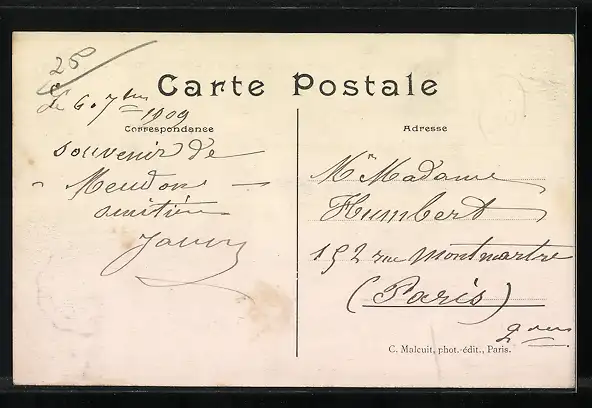 25
Carte Postale
le 6. 7bre
1909
Correspondance
Adresse
souvenir de
Meudon
amitié
Mr Madame
Humbert
152 rue Montmartre
(Paris)
2 dem
C. Malcuit, phot.-édit., Paris.